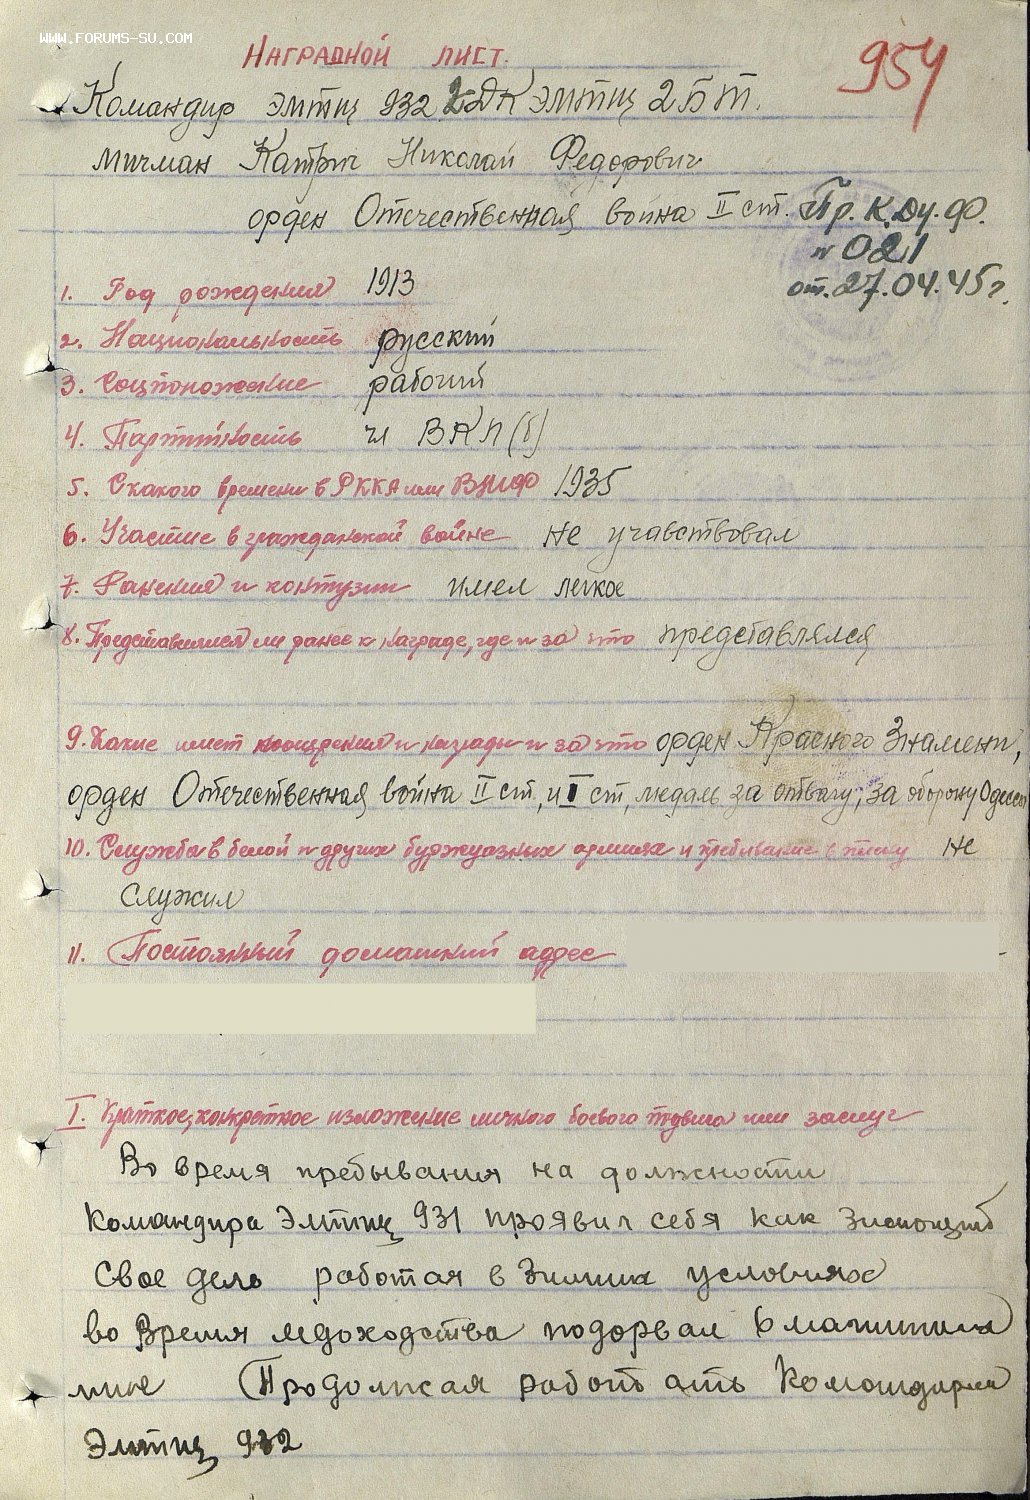 WWW.FORUMS-SU.COM
НАГРАДНОЙ ЛИСТ.
954
Командир ЭМТЩ 932 2ДК ЭМТЩ 2 БТ.
мичман Катрич Николай Федорович
орден Отечественная война II ст. Пр. К. Ду. Ф.
№ 021
от. 27.04.45 г.
1. Год рождения 1913
2. Национальность русский
3. Соцположение рабочий
4. Партийность чл ВКП(б)
5. С какого времени в РККА или ВМФ 1935
6. Участие в гражданской войне не учавствовал
7. Ранения и контузии имел легкое
8. Представлялся ли ранее к награде, где и за что представлялся
9. Какие имеет поощрения и награды и за что орден Красного Знамени,
орден Отечественная война II ст., и I ст, медаль за отвагу, за оборону Одессы
10. Служба в белой и других буржуазных армиях и пребывание в плену не
служил
11. Постоянный домашний адрес
I. Краткое, конкретное изложение личного боевого подвига или заслуг
Во время пребывания на должности
командира Эмтщ 931 проявил себя как знающий
свое дело работая в зимних условиях
во время ледоходства подорвал 6 магнитных
мин Продолжая работать командиром
Эмтщ 932